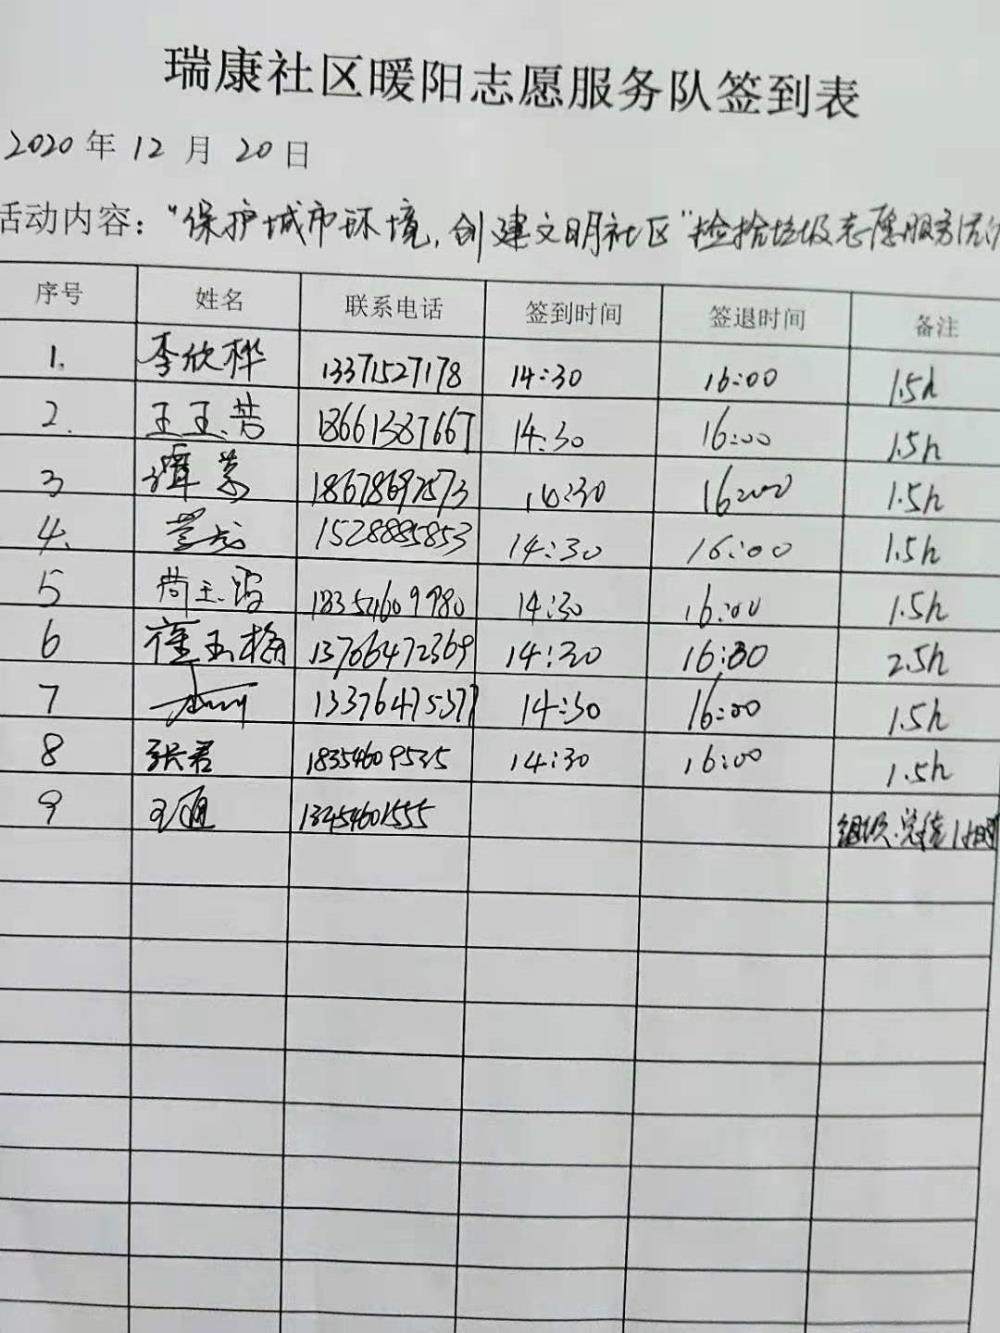 瑞康社区暖阳志愿服务队签到表
2020年12月20日
活动内容："保护城市环境,创建文明社区"捡拾垃圾志愿服务活
序号 姓名 联系电话 签到时间 签退时间 备注
1. 李欣桦 13371527178 14:30 16:00 1.5h
2. 18661387667 14:30 16:00 1.5h
3 谭蒙 18678697573 14:30 16:00 1.5h
4. 15288885853 14:30 16:00 1.5h
5 18354609980 14:30 16:00 1.5h
6 崔玉梅 13766472369 14:30 16:30 2.5h
7 13376475377 14:30 16:00 1.5h
8 张君 18354609535 14:30 16:00 1.5h
9 王通 13454601555 组织.总结1小时